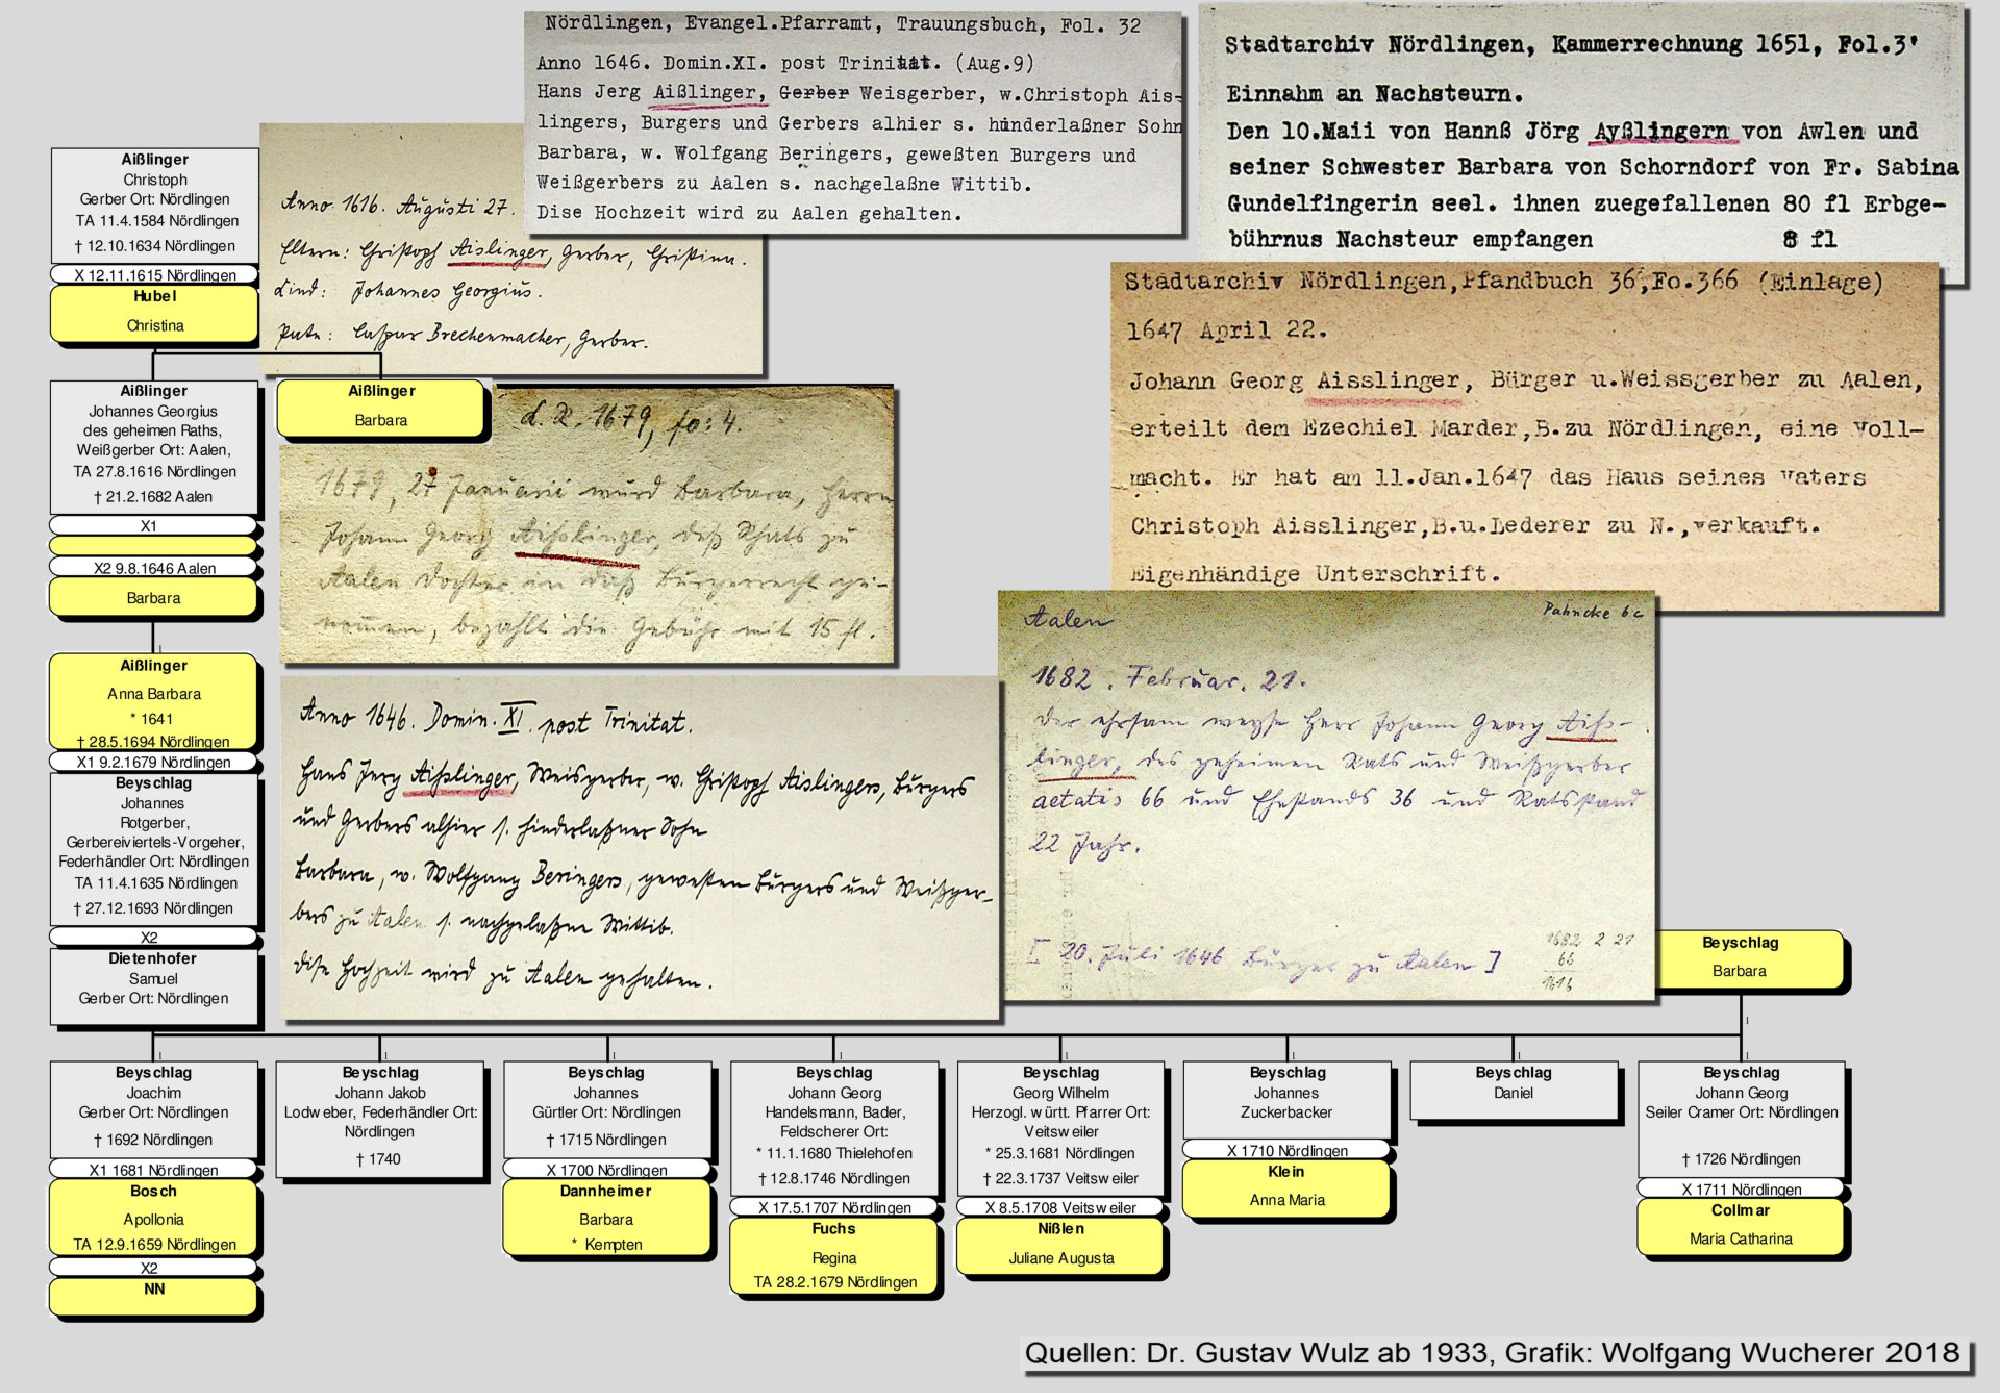 Nördlingen, Evangel.Pfarramt, Trauungsbuch, Fol. 32
Anno 1646. Domin.XI. post Trinitat. (Aug.9)
Hans Jerg Aißlinger, Gerber Weisgerber, w.Christoph Ais-
lingers, Burgers und Gerbers alhier s. hinderlaßner Sohn
Barbara, w. Wolfgang Beringers, geweßten Burgers und
Weißgerbers zu Aalen s. nachgelaßne Wittib.
Dise Hochzeit wird zu Aalen gehalten.
Stadtarchiv Nördlingen, Kammerrechnung 1651, Fol.3'
Einnahm an Nachsteurn.
Den 10.Maii von Hannß Jörg Ayßlingern von Awlen und
seiner Schwester Barbara von Schorndorf von Fr. Sabina
Gundelfingerin seel. ihnen zuegefallenen 80 fl Erbge-
bührnus Nachsteur empfangen 8 fl
Stadtarchiv Nördlingen,Pfandbuch 36,Fo.366 (Einlage)
1647 April 22.
Johann Georg Aisslinger, Bürger u.Weissgerber zu Aalen,
erteilt dem Ezechiel Marder,B.zu Nördlingen, eine Voll-
macht. Er hat am 11.Jan.1647 das Haus seines Vaters
Christoph Aisslinger,B.u.Lederer zu N.,verkauft.
Eigenhändige Unterschrift.
Anno 1616. Augusti 27.
Eltern: Christoph Aislinger, Gerber, Christina.
Kind: Johannes Georgius.
Pate: Caspar Brechenmacher, Gerber.
1679, fo: 4.
1679, 27 Januarii wurd Barbara, Herrn
Johann Georg Aißlinger, deß Rhats zu
Aalen Dochter in daß Burgerrecht ge-
nommen, bezahlt die Gebühr mit 15 fl.
Anno 1646. Domin. XI. post Trinitat.
Hans Jerg Aißlinger, Weisgerber, w. Christoph Aislingers, Burgers
und Gerbers alhier s. hinderlaßner Sohn
Barbara, w. Wolfgang Beringers, geweßten Burgers und Weißger-
bers zu Aalen s. nachgelaßne Wittib.
Dise Hochzeit wird zu Aalen gehalten.
Aalen
Pahncke 6c
1682. Februar. 21.
Der ehrsam weyse Herr Johann Georg Aiß-
linger, des geheimen Rats und Weißgerber
aetatis 66 und Ehestands 36 und Ratsstand
22 Jahr.
[ 20. Juli 1646 Bürger zu Aalen ]
1682 2 21
66
1616
Aißlinger
Christoph
Gerber Ort: Nördlingen
TA 11.4.1584 Nördlingen
† 12.10.1634 Nördlingen
X 12.11.1615 Nördlingen
Hubel
Christina
Aißlinger
Johannes Georgius
des geheimen Raths,
Weißgerber Ort: Aalen,
TA 27.8.1616 Nördlingen
† 21.2.1682 Aalen
X1
X2 9.8.1646 Aalen
Barbara
Aißlinger
Barbara
Aißlinger
Anna Barbara
* 1641
† 28.5.1694 Nördlingen
X1 9.2.1679 Nördlingen
Beyschlag
Johannes
Rotgerber,
Gerbereiviertels-Vorgeher,
Federhändler Ort: Nördlingen
TA 11.4.1635 Nördlingen
† 27.12.1693 Nördlingen
X2
Dietenhofer
Samuel
Gerber Ort: Nördlingen
Beyschlag
Barbara
Beyschlag
Joachim
Gerber Ort: Nördlingen
† 1692 Nördlingen
X1 1681 Nördlingen
Bosch
Apollonia
TA 12.9.1659 Nördlingen
X2
NN
Beyschlag
Johann Jakob
Lodweber, Federhändler Ort:
Nördlingen
† 1740
Beyschlag
Johannes
Gürtler Ort: Nördlingen
† 1715 Nördlingen
X 1700 Nördlingen
Dannheimer
Barbara
* Kempten
Beyschlag
Johann Georg
Handelsmann, Bader,
Feldscherer Ort:
* 11.1.1680 Thielehofen
† 12.8.1746 Nördlingen
X 17.5.1707 Nördlingen
Fuchs
Regina
TA 28.2.1679 Nördlingen
Beyschlag
Georg Wilhelm
Herzogl. württ. Pfarrer Ort:
Veitsweiler
* 25.3.1681 Nördlingen
† 22.3.1737 Veitsweiler
X 8.5.1708 Veitsweiler
Nißlen
Juliane Augusta
Beyschlag
Johannes
Zuckerbacker
X 1710 Nördlingen
Klein
Anna Maria
Beyschlag
Daniel
Beyschlag
Johann Georg
Seiler Cramer Ort: Nördlingen
† 1726 Nördlingen
X 1711 Nördlingen
Collmar
Maria Catharina
Quellen: Dr. Gustav Wulz ab 1933, Grafik: Wolfgang Wucherer 2018